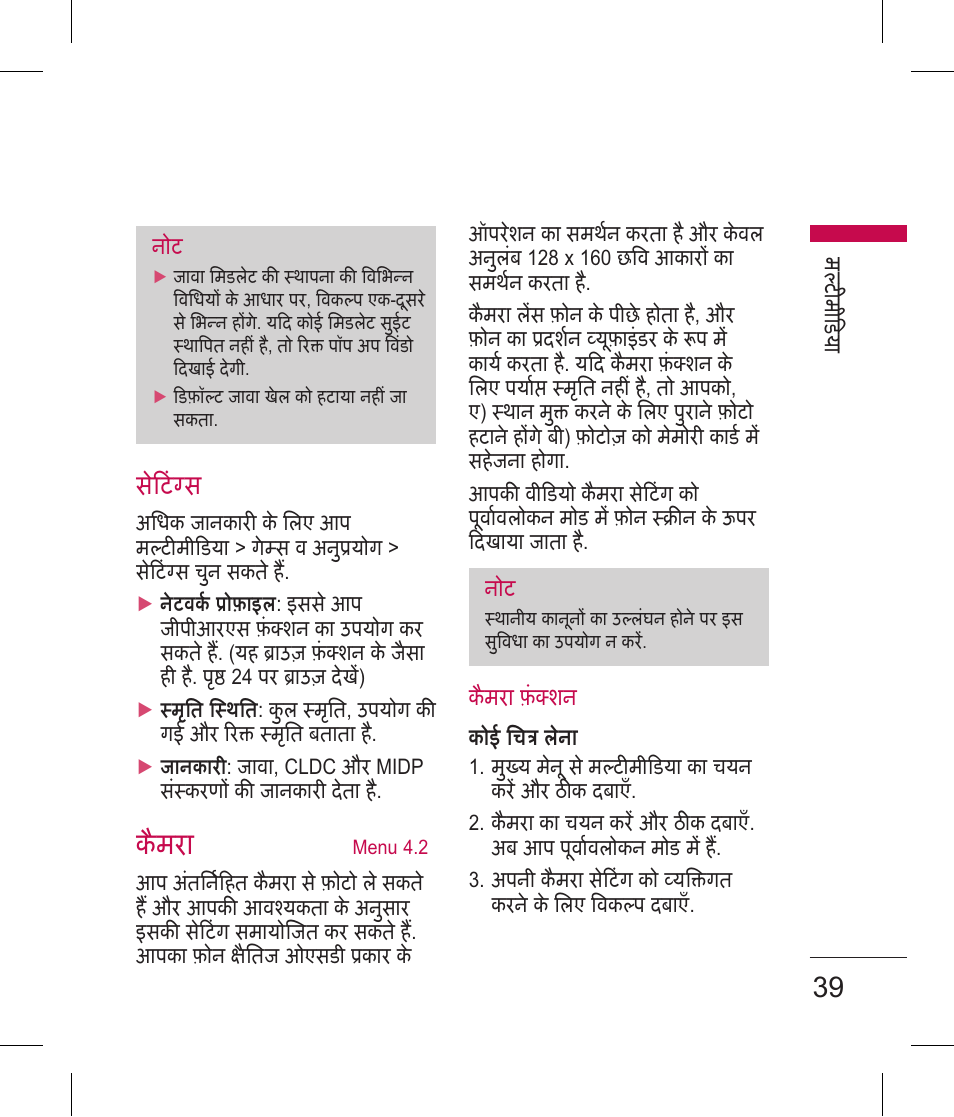 नोट
► जावा मिडलेट की स्थापना की विभिन्न
विधियों के आधार पर, विकल्प एक-दूसरे
से भिन्न होंगे. यदि कोई मिडलेट सुईट
स्थापित नहीं है, तो रिक्त पॉप अप विंडो
दिखाई देगी.
► डिफ़ॉल्ट जावा खेल को हटाया नहीं जा
सकता.
सेटिंग्स
अधिक जानकारी के लिए आप
मल्टीमीडिया > गेम्स व अनुप्रयोग >
सेटिंग्स चुन सकते हैं.
► नेटवर्क प्रोफ़ाइल: इससे आप
जीपीआरएस फ़ंक्शन का उपयोग कर
सकते हैं. (यह ब्राउज़ फ़ंक्शन के जैसा
ही है. पृष्ठ 24 पर ब्राउज़ देखें)
► स्मृति स्थिति: कुल स्मृति, उपयोग की
गई और रिक्त स्मृति बताता है.
► जानकारी: जावा, CLDC और MIDP
संस्करणों की जानकारी देता है.
कैमरा Menu 4.2
आप अंतर्निहित कैमरा से फ़ोटो ले सकते
हैं और आपकी आवश्यकता के अनुसार
इसकी सेटिंग समायोजित कर सकते हैं.
आपका फ़ोन क्षैतिज ओएसडी प्रकार के
ऑपरेशन का समर्थन करता है और केवल
अनुलंब 128 x 160 छवि आकारों का
समर्थन करता है.
कैमरा लेंस फ़ोन के पीछे होता है, और
फ़ोन का प्रदर्शन व्यूफ़ाइंडर के रूप में
कार्य करता है. यदि कैमरा फ़ंक्शन के
लिए पर्याप्त स्मृति नहीं है, तो आपको,
ए) स्थान मुक्त करने के लिए पुराने फ़ोटो
हटाने होंगे बी) फ़ोटोज़ को मेमोरी कार्ड में
सहेजना होगा.
आपकी वीडियो कैमरा सेटिंग को
पूर्वावलोकन मोड में फ़ोन स्क्रीन के ऊपर
दिखाया जाता है.
नोट
स्थानीय कानूनों का उल्लंघन होने पर इस
सुविधा का उपयोग न करें.
कैमरा फ़ंक्शन
कोई चित्र लेना
1. मुख्य मेनू से मल्टीमीडिया का चयन
करें और ठीक दबाएँ.
2. कैमरा का चयन करें और ठीक दबाएँ.
अब आप पूर्वावलोकन मोड में हैं.
3. अपनी कैमरा सेटिंग को व्यक्तिगत
करने के लिए विकल्प दबाएँ.
मल्टीमीडिया
39